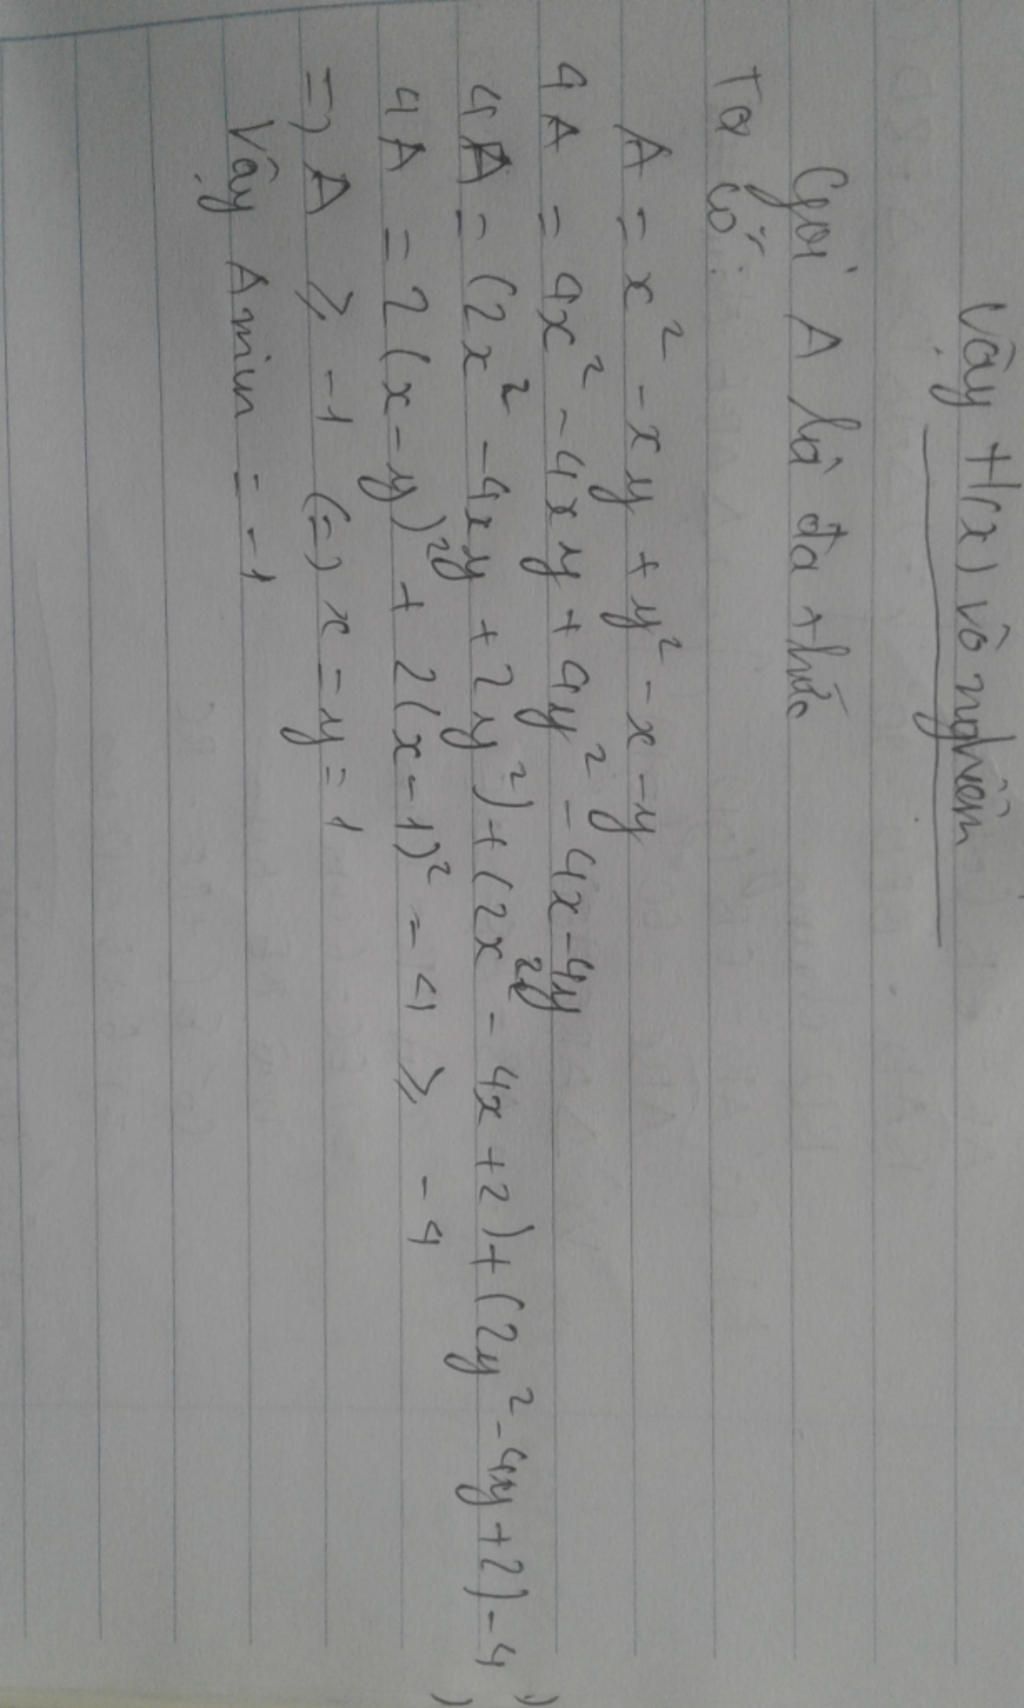 Vậy H(x) vô nghiệm
Gọi A là đa thức
Ta có:
A = x² - xy + y² - x - y
4A = 4x² - 4xy + 4y² - 4x - 4y
4A = (2x² - 4xy + 2y²) + (2x² - 4x + 2) + (2y² - 4y + 2) - 4
4A = 2(x - y)² + 2(x - 1)² - 4 ≥ -4
=> A ≥ -1 (=) x = y = 1
Vậy Amin = -1